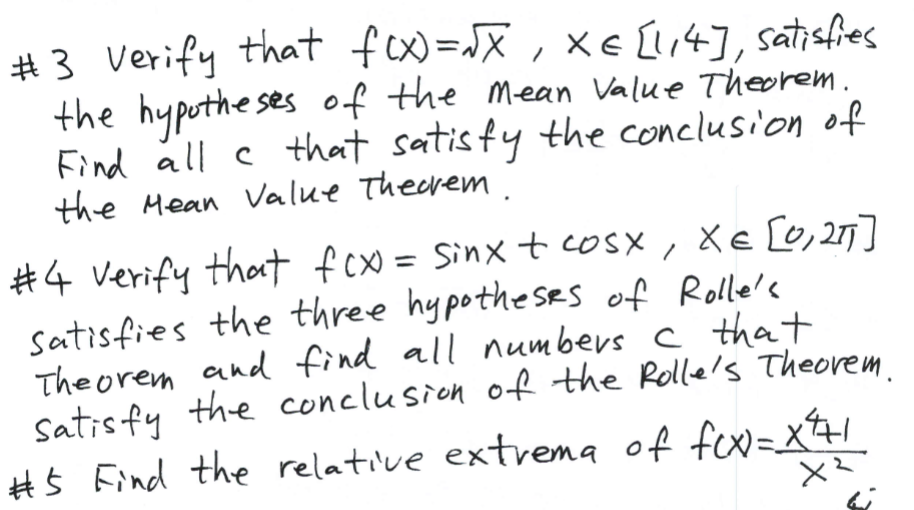 #3 Verify that f(x)=√x , x∈[1,4], satisfies
the hypotheses of the Mean Value Theorem.
Find all c that satisfy the conclusion of
the Mean Value Theorem.
#4 Verify that f(x) = sinx + cosx , x∈[0,2π]
satisfies the three hypotheses of Rolle's
Theorem and find all numbers c that
satisfy the conclusion of the Rolle's Theorem.
#5 Find the relative extrema of f(x)=(x⁴+1)/x²